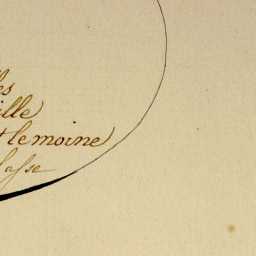 es
ille
lemoine
asse